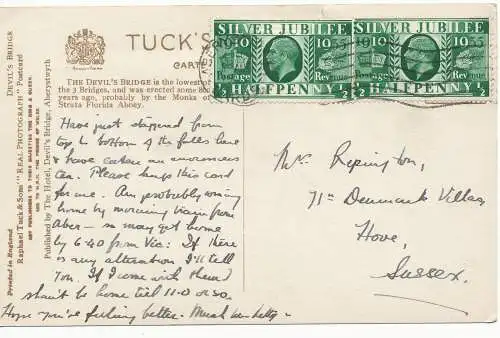 TUCK'S
CARTE
THE DEVIL'S BRIDGE is the lowest of
the 3 Bridges, and was erected some
years ago, probably by the Monks of
Strata Florida Abbey.
SILVER JUBILEE
1910 1935
Postage Revenue
½ HALFPENNY ½
SILVER JUBILEE
1910 1935
Postage Revenue
½ HALFPENNY ½
DEVIL'S BRIDGE
Raphael Tuck & Sons' "REAL PHOTOGRAPH" Postcard
ART PUBLISHERS TO THEIR MAJESTIES THE KING & QUEEN,
AND TO H.R.H. THE PRINCE OF WALES.
Published by The Hotel, Devil's Bridge, Aberystwyth
Printed in England
Have just stepped from
top to bottom of the falls here
& have eaten an enormous
tea. Please keep this card
for me. Am probably coming
home by morning train from
Aber – so may get home
by 6.40 from Vic: If there
is any alteration I'll tell
You. If I come with them I
shan't be home till 11-0 or so.
Hope you're feeling better. Much love
Mrs Repington,
71st Denmark Villas,
Hove,
Sussex.